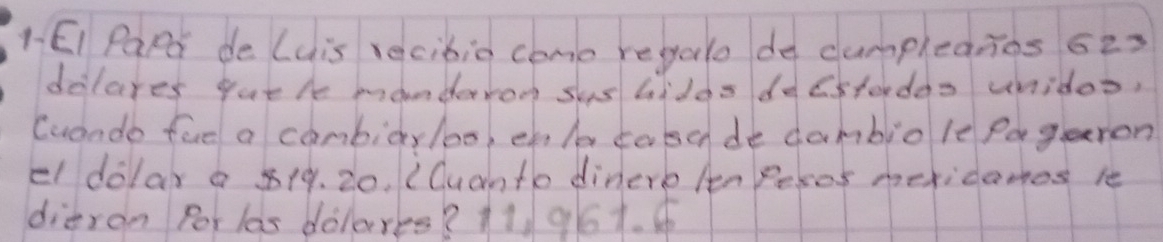 1-El Papá de Luis recibio como regalo de cumpleaños 623
dólares que le mandaron sus hijos de Estados unidos,
Cuando fue a cambiarlos, en la casa de cambio le Pagaron
el dólar a $19.20. ¿Cuanto dinero en Pesos mexicanos le
dieron Por los dólares? 11,961.6